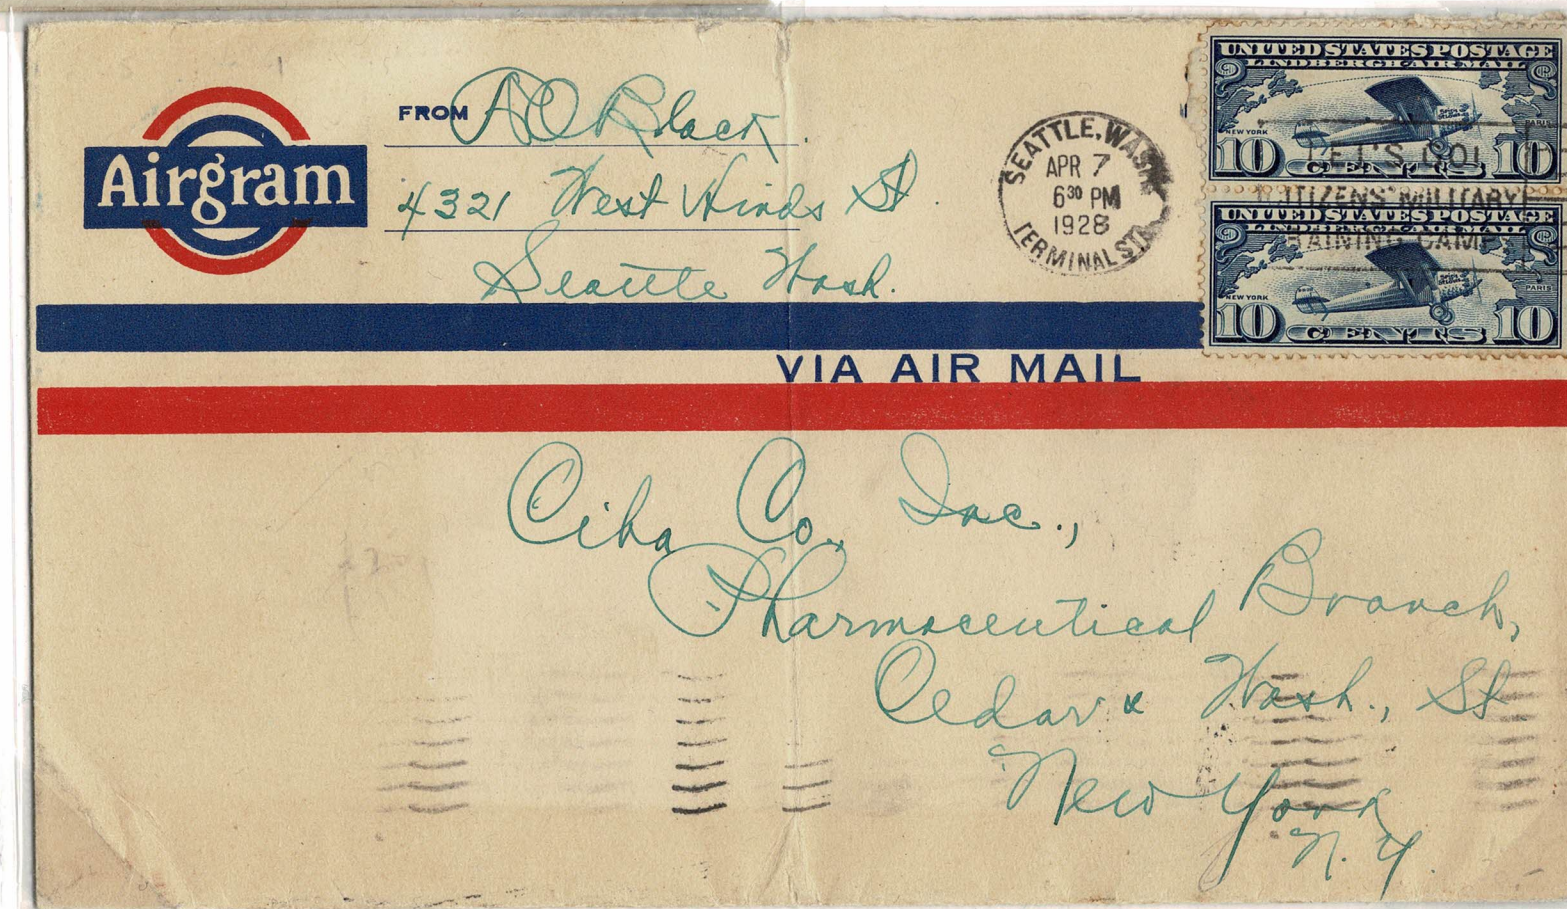 Airgram
FROM A O Black.
4321 West Hinds St.
Seattle Wash.
SEATTLE, WASH.
APR 7
6 30 PM
1928
TERMINAL STA.
UNITED STATES POSTAGE
LINDBERGH AIR MAIL
NEW YORK
PARIS
10 10
LET'S GO!
CITIZENS MILITARY
TRAINING CAMP
UNITED STATES POSTAGE
LINDBERGH AIR MAIL
NEW YORK
PARIS
10 CENTS 10
VIA AIR MAIL
Ciba Co. Inc.,
Pharmaceutical Branch,
Cedar & Wash., St
New York
N. Y.